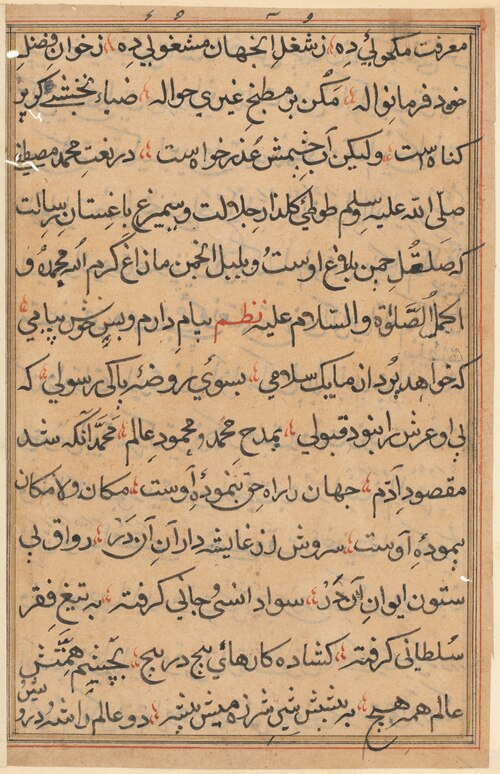 معرفت مکحولئ ده ز شغل اینجهان مشغولی ده ز خوان فضل
خود فرما نواله مکن بر مطبخ غیری حواله ضیاء نخشبے کو پر
کناه است ولیکن آب چشمش عذر خواه است در نعت محمد مصطفی
صلی الله علیه وسلم طوطئ کلذار جلالت و سیمرغ باغستان رسالت
که صلصل چمن بلاغ اوست و بلبل انجمن مازاغ کرم الله محمده و
اکمل الصلوة والسلام علیه نظم پیام دارم و بس خوش پیامی
که خواهد بود ان مایک سلامی بسوئ روضهٔ پاکی رسولی که
بی او عرش را نبود قبولی بمدح محمد و محمود عالم محمد آنکه شد
مقصود آدم جهان را راه حق بنمودهٔ اوست مکان و لامکان
پیمودهٔ اوست سروش از غایشه داران آن در رواق بی
ستون ایوان آن در سواد انسی و جانی کرفته به تیغ فقر
سلطانی کرفته کشاده کارهای پیچ در پیچ بچشم همتش
عالم همه هیچ به پیشش شیر شرزه میش پیشه دو عالم را شده رو